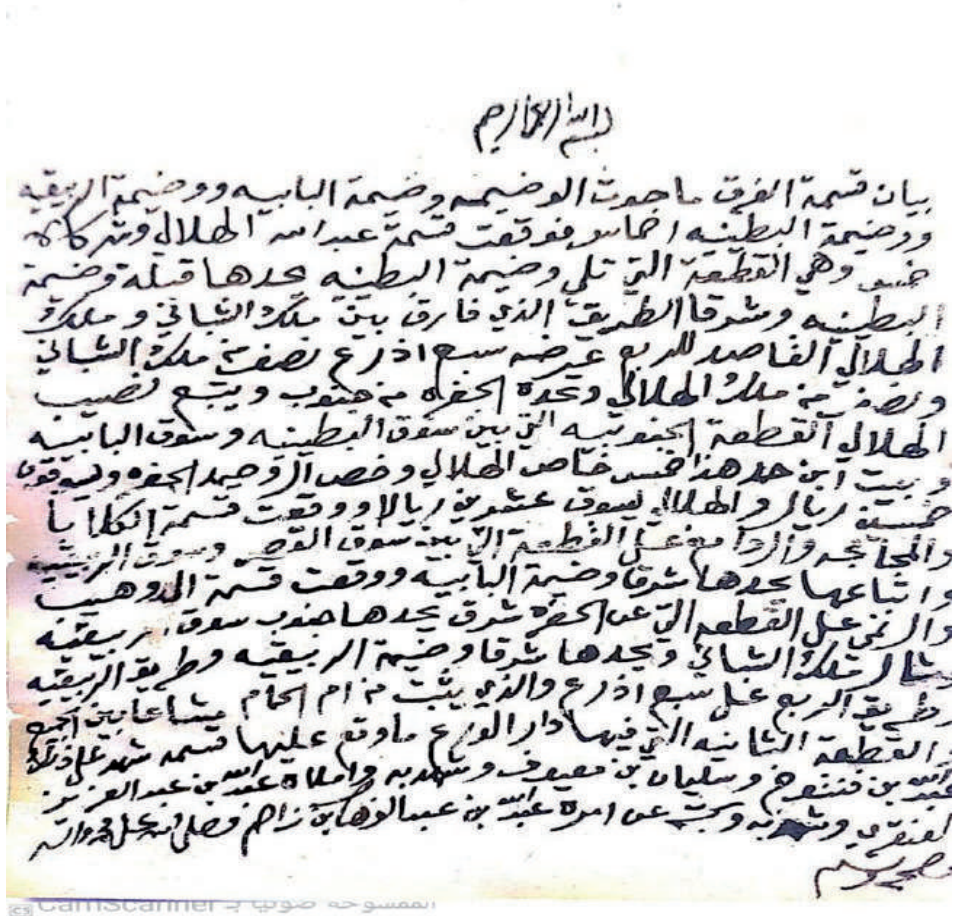 بسم الله الرحمن الرحيم
بيان قسمة الفرق ما حوت الوضيمه وضيمة البابيه ووضيمة الربيقيه
ووضيمة البطينيه اخماس فوقعت قسمة عبدالله الهلالي وشركائه
خمس وهي القطعة التي تلي وضيمة البطينيه يحدها قبلة وضيمة
البطينيه وشرقا الطريق الذي فارق بين ملك الشباني وملك
الهلالي القاصد للربع عرضه سبع اذرع نصف من ملك الشباني
ونصف من ملك الهلالي وتحده الحفره من جنوب ويتبع نصيب
الهلالي القطعة الجنوبيه التي بين سوق البطينيه وسوق البابيه
وبيت ابن حمد هذا خمس خاص الهلالي وخص ال الحفره
خمسين ريال والهلالي يسوق عشرين ريالا ووقعت قسمة
على القطعة التي بين سوق وسوق الربيقيه
واتباعها يحدها شرقا وضيمة البابيه ووقعت قسمة
على القطعه التي عن الحفره شرق يحدها جنوب سوق الربيقيه
ملك الشباني ويحدها شرقا وضيمة الربيقيه وطريق الربيقيه
وطريق الربع على سبع اذرع والذي يثبت من ام الحمام مشاعا بين
القطعة الثانيه التي فيها دار ما وقع عليها قسمه شهد على ذلك
عبدالله بن وسليمان بن وشهد به واملاه عبدالله بن عبدالعزيز
العنقري وشهد به وكتبه عن امره عبدالله بن عبدالوهاب بن زاحم وصلى الله على محمد واله
وصحبه وسلم
الممسوحة ضوئيا بـ CamScanner
CS